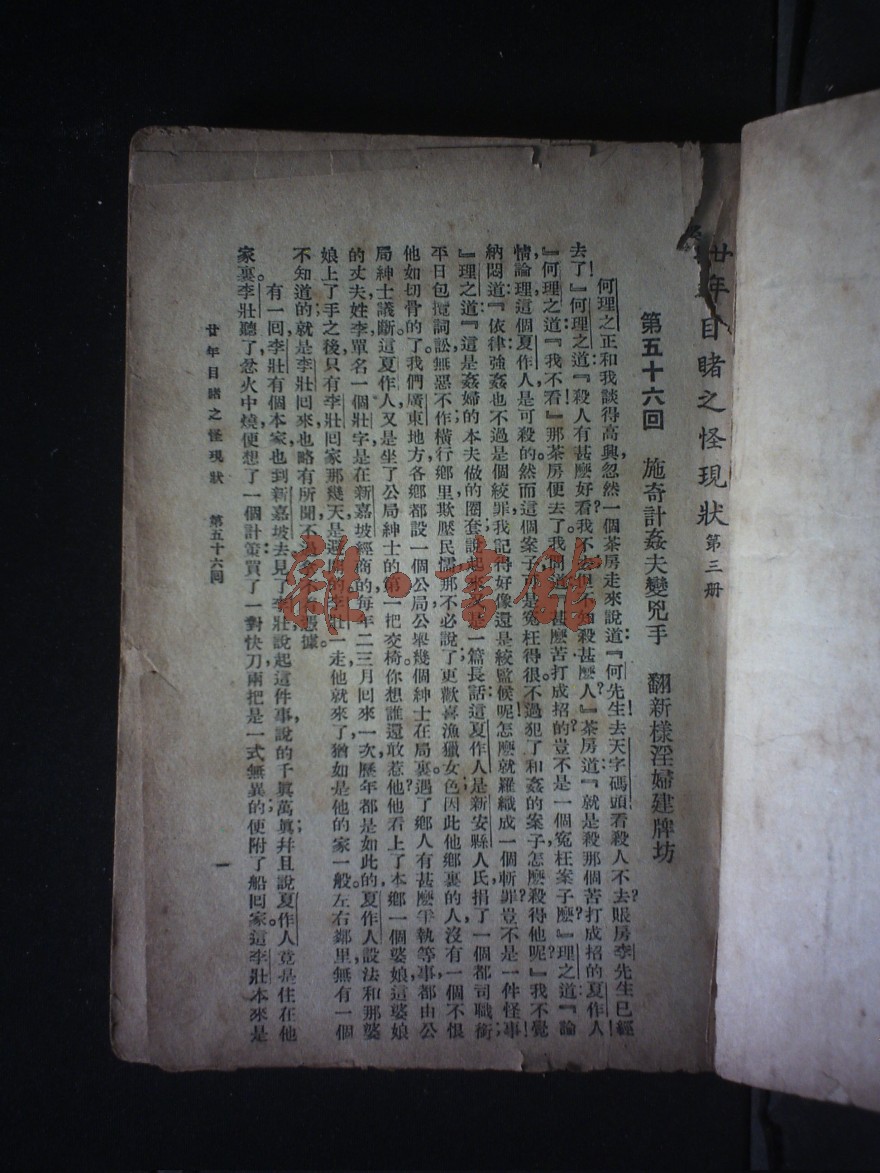 廿年目睹之怪現狀 第三册
第五十六回 施奇計姦夫變兇手 翻新樣淫婦建牌坊
何理之正和我談得高興，忽然一個茶房走來說道：『何先生！去天字碼頭看殺人不去？賬房李先生已經
去了！』何理之道：『殺人有甚麼好看，我不去。但不知殺甚麼人？』茶房道：『就是殺那個苦打成招的夏作人
。』何理之道：『我不看。』那茶房便去了。我問道：『甚麼苦打成招的？豈不是一個寃枉案子麼？』理之道：『論
情論理，這個夏作人是可殺的；然而這個案子 是寃枉得很。不過犯了和姦的案子，怎麼殺得他呢？』我不覺
納悶道：『依律，強姦也不過是個絞罪，我記得好像還是絞監候呢。怎麼就羅織成一個斬罪？豈不是一件怪事！
』理之道：『這是姦婦的本夫做的圈套。說起來又是一篇長話：這夏作人是新安縣人氏，捐了一個都司職銜，
平日包攬詞訟，無惡不作，橫行鄉里，欺壓民懦，那不必說了；更歡喜漁獵女色。因此他鄉裏的人，沒有一個不恨
他如切骨的了。我們廣東地方，各鄉都設一個公局，公舉幾個紳士在局裏，遇了鄉人有甚麼爭執等事，都由公
局紳士議斷。這夏作人又是坐了公局紳士的第一把交椅，你想誰還敢惹他？他看上了本鄉一個婆娘，這婆娘
的丈夫姓李，單名一個壯字，是在新嘉坡經商的，每年二三月回來一次，歷年都是如此的。夏作人設法和那婆
娘上了手之後，只有李壯回家那幾天是 的，李壯一走，他就來了，猶如是他的家一般。左右鄰里，無有一個
不知道的。就是李壯回來，也略有所聞，不過 憑據。
有一回，李壯有個本家，也到新嘉坡去，見了李壯，說起這件事，說的千眞萬眞，幷且說夏作人竟是住在他
家裏。李壯聽了，忿火中燒，便想了一個計策，買了一對快刀，兩把是一式無異的，便附了船回家。這李壯本來是
廿年目睹之怪現狀 第五十六回
一
雜·書館